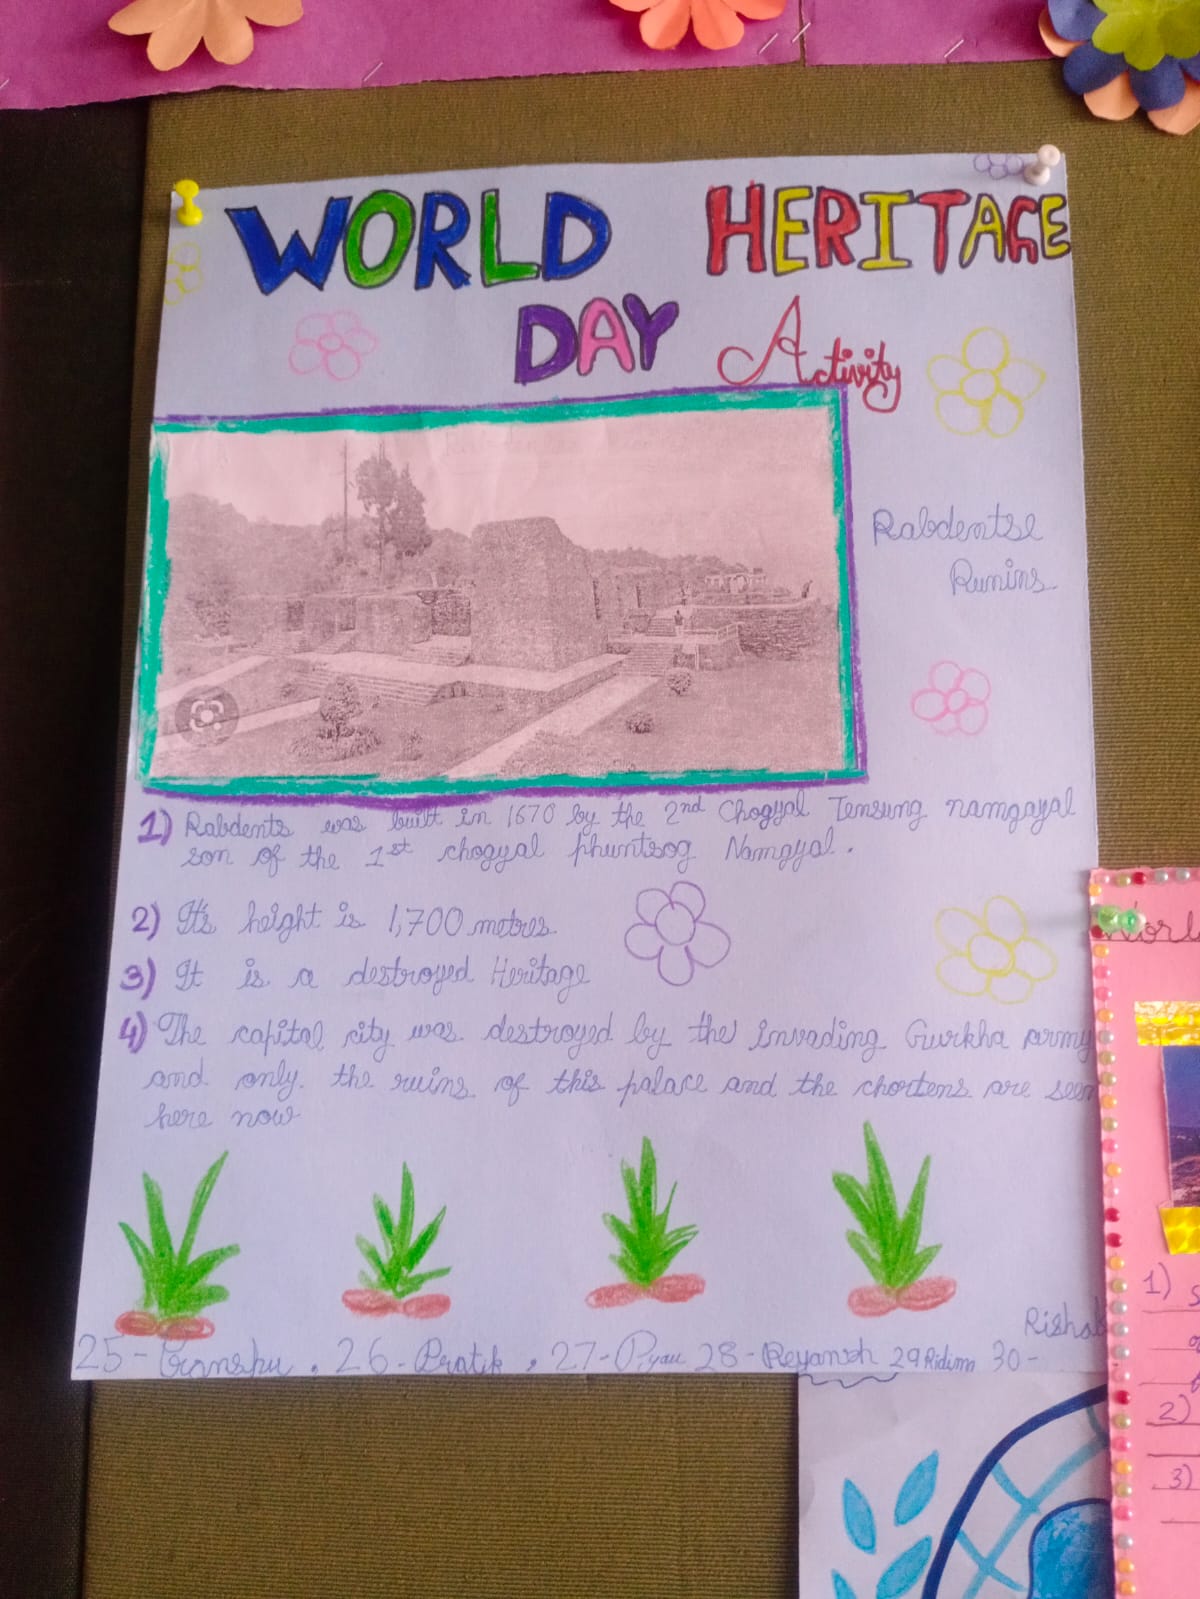 WORLD HERITAGE
DAY Activity
Rabdentse
Runins
1) Rabdents was built in 1670 by the 2nd Chogyal Tensung namgayal
son of the 1st chogyal phuntsog Namgyal.
2) It's height is 1,700 metres
3) It is a destroyed Heritage
4) The capital city was destroyed by the invading Gurkha army
and only. the ruins of this palace and the chortens are seen
here now
Rishab
25- , 26-Pratik , 27- 28-Reyansh 29 Ridim 30-
1)
2)
3)